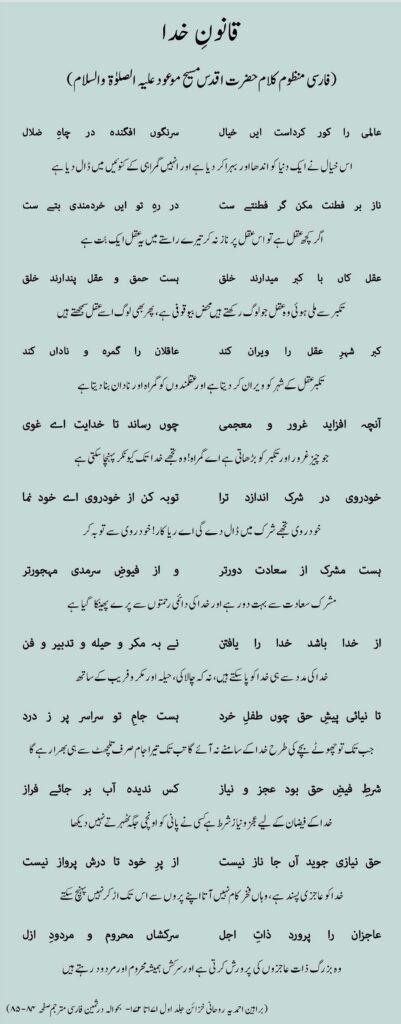 قانونِ خدا
(فارسی منظوم کلام حضرت اقدس مسیح موعود علیہ الصلوٰۃ والسلام)
عالمی را کور کرداست ایں خیال سرنگوں افگندہ در چاہِ ضلال
اس خیال نے ایک دنیا کو اندھا اور بہرا کر دیا ہے اور انہیں گمراہی کے کنوئیں میں ڈال دیا ہے
ناز بر فطنت مکن گر فطنتے ست در رہِ تو ایں خردمندی بتے ست
اگر کچھ عقل ہے تو اس عقل پر ناز نہ کر تیرے راستے میں یہ عقل ایک بت ہے
عقل کاں با کبر میدارند خلق ہست حمق و عقل پندارند خلق
تکبر سے ملی ہوئی وہ عقل جو لوگ رکھتے ہیں محض بیوقوفی ہے، پھر بھی لوگ اسے عقل سمجھتے ہیں
کبر شہرِ عقل را ویران کند عاقلان را گمرہ و ناداں کند
تکبر عقل کے شہر کو ویران کر دیتا ہے اور عقلمندوں کو گمراہ اور نادان بنا دیتا ہے
آنچہ افزاید غرور و معجمی چوں رساند تا خدایت اے غوی
جو چیز غرور اور تکبر کو بڑھاتی ہے اے گمراہ! وہ تجھے خدا تک کیونکر پہنچا سکتی ہے
خودروی در شرک اندازد ترا توبہ کن از خودروی اے خود نما
خود روی تجھے شرک میں ڈال دے گی اے ریاکار! خود روی سے توبہ کر
ہست مشرک از سعادت دورتر و از فیوضِ سرمدی مہجورتر
مشرک سعادت سے بہت دور ہے اور خدا کی دائمی رحمتوں سے پرے پھینکا گیا ہے
از خدا باشد خدا را یافتن نے بہ مکر و حیلہ و تدبیر و فن
خدا کی مدد سے ہی خدا کو پا سکتے ہیں، نہ کہ چالاکی، حیلہ اور مکر و فریب کے ساتھ
تا نیائی پیشِ حق چوں طفلِ خرد ہست جامِ تو سراسر پر ز درد
جب تک تو چھوٹے بچے کی طرح خدا کے سامنے نہ آئے گا تب تک تیرا جام صرف تلچھٹ سے ہی بھرا رہے گا
شرطِ فیضِ حق بود عجز و نیاز کس ندیدہ آب بر جائے فراز
خدا کے فیضان کے لیے عجز و نیاز شرط ہے کسی نے پانی کو اونچی جگہ ٹھہرتے نہیں دیکھا
حق نیازی جوید آں جا ناز نیست از پرِ خود تا درش پرواز نیست
خدا کو عاجزی پسند ہے، وہاں فخر کام نہیں آتا اپنے پروں سے اس تک اڑ کر نہیں پہنچ سکتے
عاجزاں را پرورد ذاتِ اجل سرکشاں محروم و مردودِ ازل
وہ بزرگ ذات عاجزوں کی پرورش کرتی ہے اور سرکش ہمیشہ محروم اور مردود رہتے ہیں
(براہین احمدیہ روحانی خزائن جلد اول ۱۷۱ تا ۱۷۲- بحوالہ درثمین فارسی مترجم صفحہ ۸۴-۸۵)